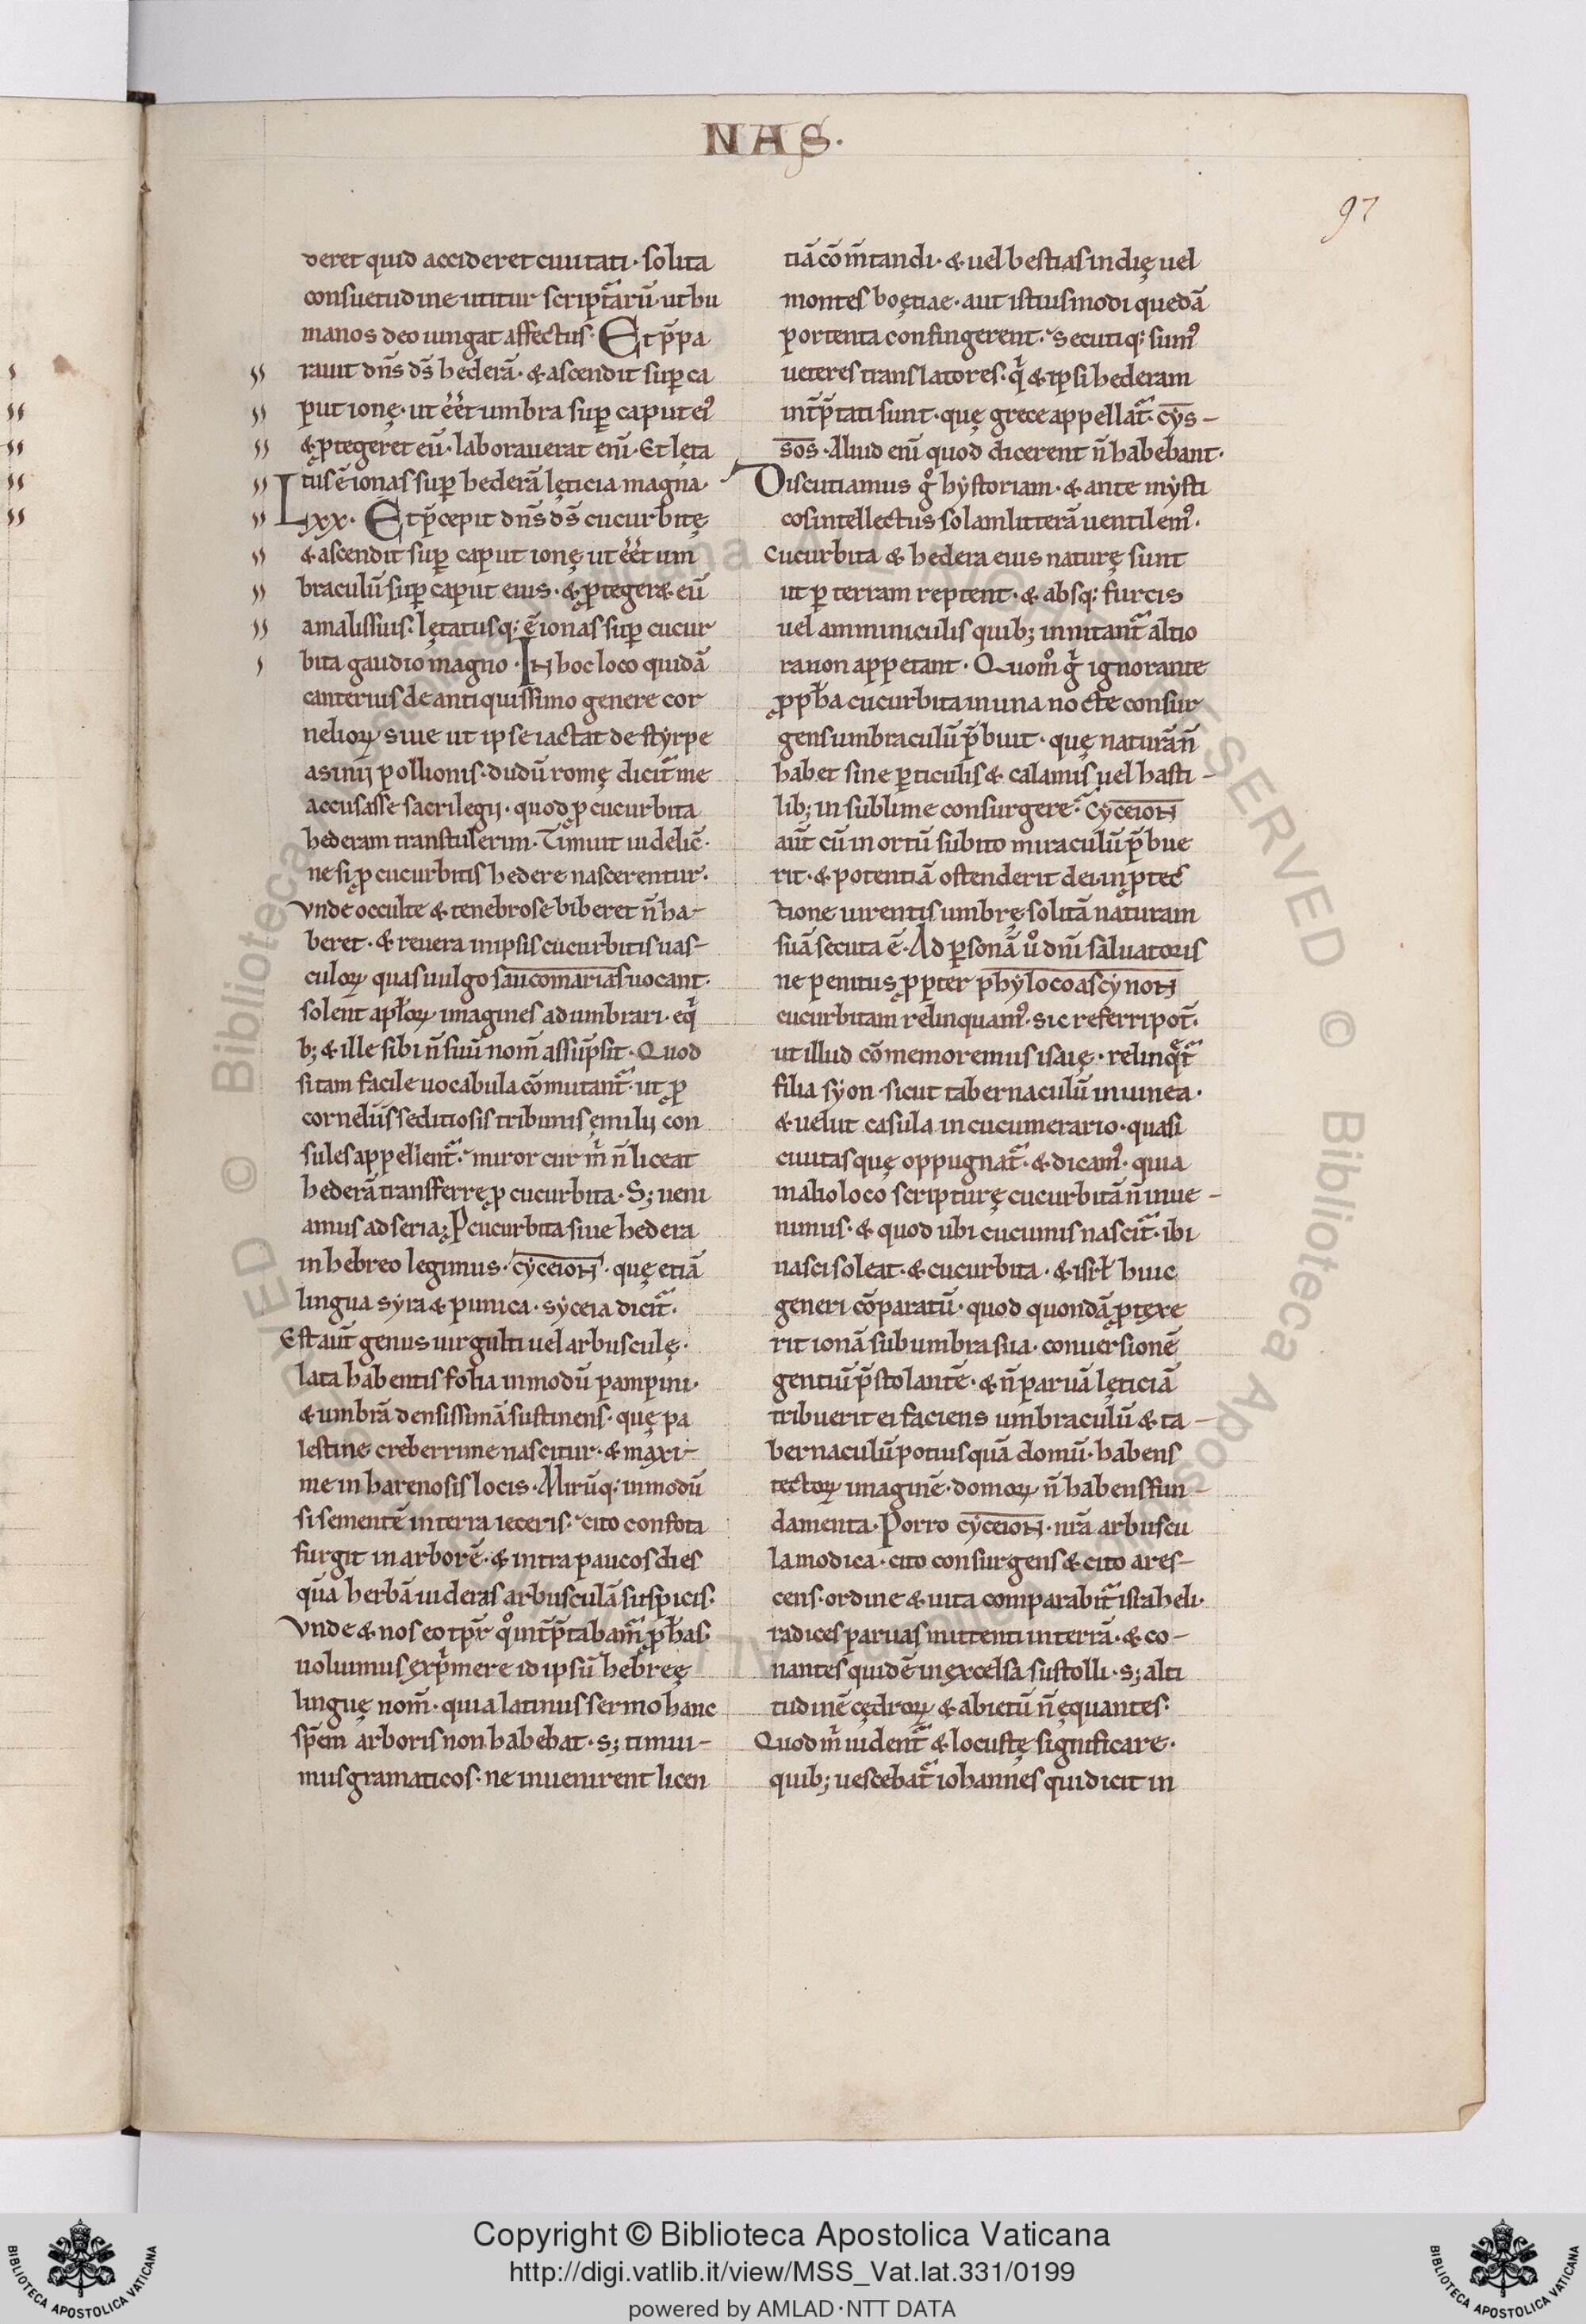 NAS.
97
deret quid accideret ciuitati· solita
consuetudine utitur script̃arũ· ut hu
manos deo iungat affectus· Et p̃pa
rauit dñs ds̃ hederã· & ascendit suꝑ ca
put ionę· ut eẽt umbra suꝑ caput ei᾿
& ꝓtegeret eũ· laborauerat eni̅· Et lęta
tus ẽ ionas suꝑ hederã lęticia magna·
Lxx· Et p̃cepit dñs ds̃ cucurbitę
& ascendit suꝑ caput ionę ut eẽt um
braculũ suꝑ caput eius· & ꝓteger& eũ
a malis suis· lętatusq: ẽ ionas suꝑ cucur
bita gaudio magno· In hoc loco quidã
canterius de antiquissimo genere cor
nelioꝝ siue ut ipse iactat de styrpe
asinij pollionis· dudũ romę dicit̃ me
accusasse sacrilegij· quod ꝓ cucurbita
hederam transtulerim· Timuit uidelic̃·
ne si ꝓ cucurbitis hedere nascerentur·
vnde occulte & tenebrose biberet ñ ha-
beret· & reuera in ipsis cucurbitis uas-
culoꝝ quas uulgo saucomarias uocant·
solent apl̃oꝝ imagines adumbrari· eq̇
b; & ille sibi ñ suũ nom̃ assũpsit· Quod
si tam facile uocabula cõmutant̃· ut ꝓ
cornelijs seditiosis tribunis ęmilij con
sules appellent̃· miror cur m̃ ñ liceat
hederã transferrę ꝓ cucurbita· S; ueni
amus ad seria; P̱ cucurbita siue hedera
in hebreo legimus· cyceion· quę etiã
lingua syra & punica· syceia dicit̃·
Est aut̃ genus uirgulti uel arbusculę·
lata habentis folia in modũ pampini·
& umbrã densissimã sustinens· quę pa
lestine creberrime nascitur· & maxi-
me in harenosis locis· Mirũq: in modũ
si sementẽ in terra ieceris· cito confota
surgit in arborẽ· & intra paucos dies
quã herbã uideras arbusculã suspicis·
Vnde & nos eo tp̃r q̊ int̃p̃tabam̃ ꝓph̃as·
uoluimus exp̃mere id ipsũ hebreę
linguę nom̃· quia latinus sermo hanc
sp̃em arboris non habebat· s; timui-
mus gramaticos· ne inuenirent licen
tiã cõm̃tandi· & uel bestias indię uel
montes boętiae· aut istiusmodi quedã
portenta confingerent· secutiq: sum᾿
ueteres translatores· q̇ & ipsi hederam
int̃p̃tati sunt· quę grece appellat̃ cys-
sos· Aliud eni̅ quod dicerent ñ habebant·
Discutiamus g̊ hystoriam· & ante mysti
cos intellectus solam litterã uentilem᾿·
cucurbita & hedera eius naturę sunt
ut ꝑ terram reptent· & absq: furcis
uel amminiculis quib; innitant̃ altio
ra non appetant· Quom̊ g̊ ignorante
ꝓph̃a cucurbita in una nocte consur
gens umbraculũ p̃buit· quę naturã ñ
habet sine ꝑticulis & calamis uel hasti-
lib; in sublime consurgere· Cyceion
aut̃ cũ in ortũ subito miraculũ p̃bue
rit· & potentiã ostenderit dei in ꝓtec
tione uirentis umbrę· solitã naturam
suã secuta ẽ· Ad ꝑsonã u̇ dñi saluatoris
ne penitus ꝓpter phylocoascynon
cucurbitam relinquam᾿· sic referri pot̃·
ut illud cõmemoremus isaię· relinq̃t̃
filia syon· sicut tabernaculũ in uinea·
& uelut casula in cucumerario· quasi
ciuitas quę oppugnat̃· & dicam᾿· quia
in alio loco scripturę cucurbitã ñ inue-
nimus· & quod ubi cucumis nascit̃· ibi
nasci soleat· & cucurbita· & isrl̃ huic
generi cõparatũ· quod quondã ꝓtexe
rit ionã sub umbra sua· conuersionẽ
gentiũ p̃stolantẽ· & ñ paruã lęticiã
tribuerit ei faciens umbraculũ & ta-
bernaculũ potius quã domũ· habens
tectoꝝ imaginẽ· domoꝝ ñ habens fun-
damenta· Porro cyceion· nr̃a arbuscu
la modica· cito consurgens & cito ares-
cens· ordine & uita comparabit̃ israheli·
radices paruas mittenti in terrã· & co-
nantes quidẽ in excelsa sustolli· s; alti
tudinẽ cędroꝝ & abietũ ñ ęquantes·
Quod m̃ uident̃ & locustę significare·
quib; uescebat̃ iohannes qui dicit in
Copyright © Biblioteca Apostolica Vaticana
http://digi.vatlib.it/view/MSS_Vat.lat.331/0199
powered by AMLAD·NTT DATA